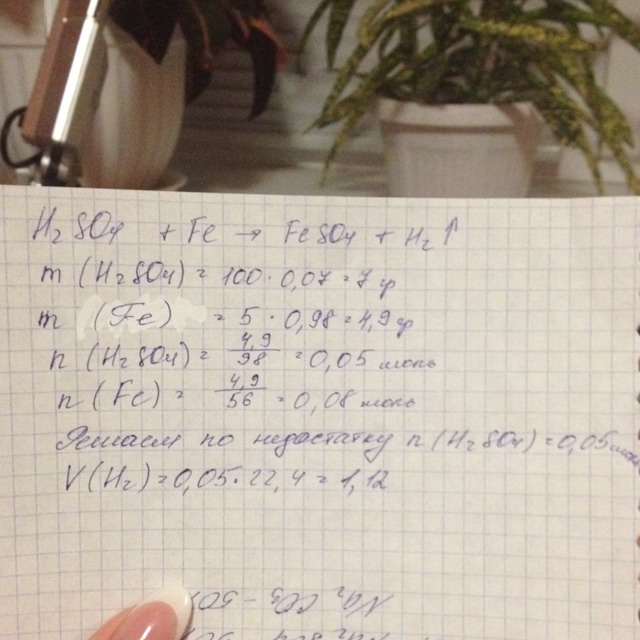 H₂SO₄ + Fe → FeSO₄ + H₂↑
m (H₂SO₄) = 100 · 0,07 = 7 гр
m (Fe) = 5 · 0,98 = 4,9 гр
n (H₂SO₄) = 4,9/98 = 0,05 моль
n (Fe) = 4,9/56 = 0,08 моль
Решаем по недостатку n (H₂SO₄) = 0,05 моль
V (H₂) = 0,05 · 22,4 = 1,12